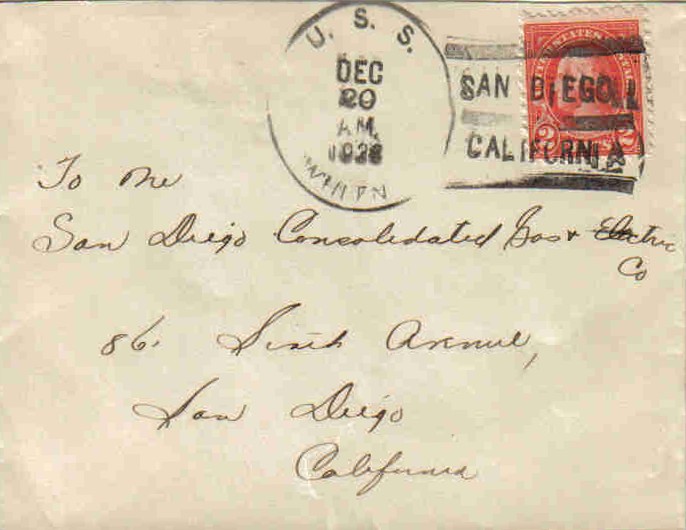 U. S. S.
DEC
20
A.M.
1928
SAN DIEGO
CALIFORNIA
2
To the
San Diego Consolidated Gas & Electric
Co
86. Sixth Avenue,
San Diego
California